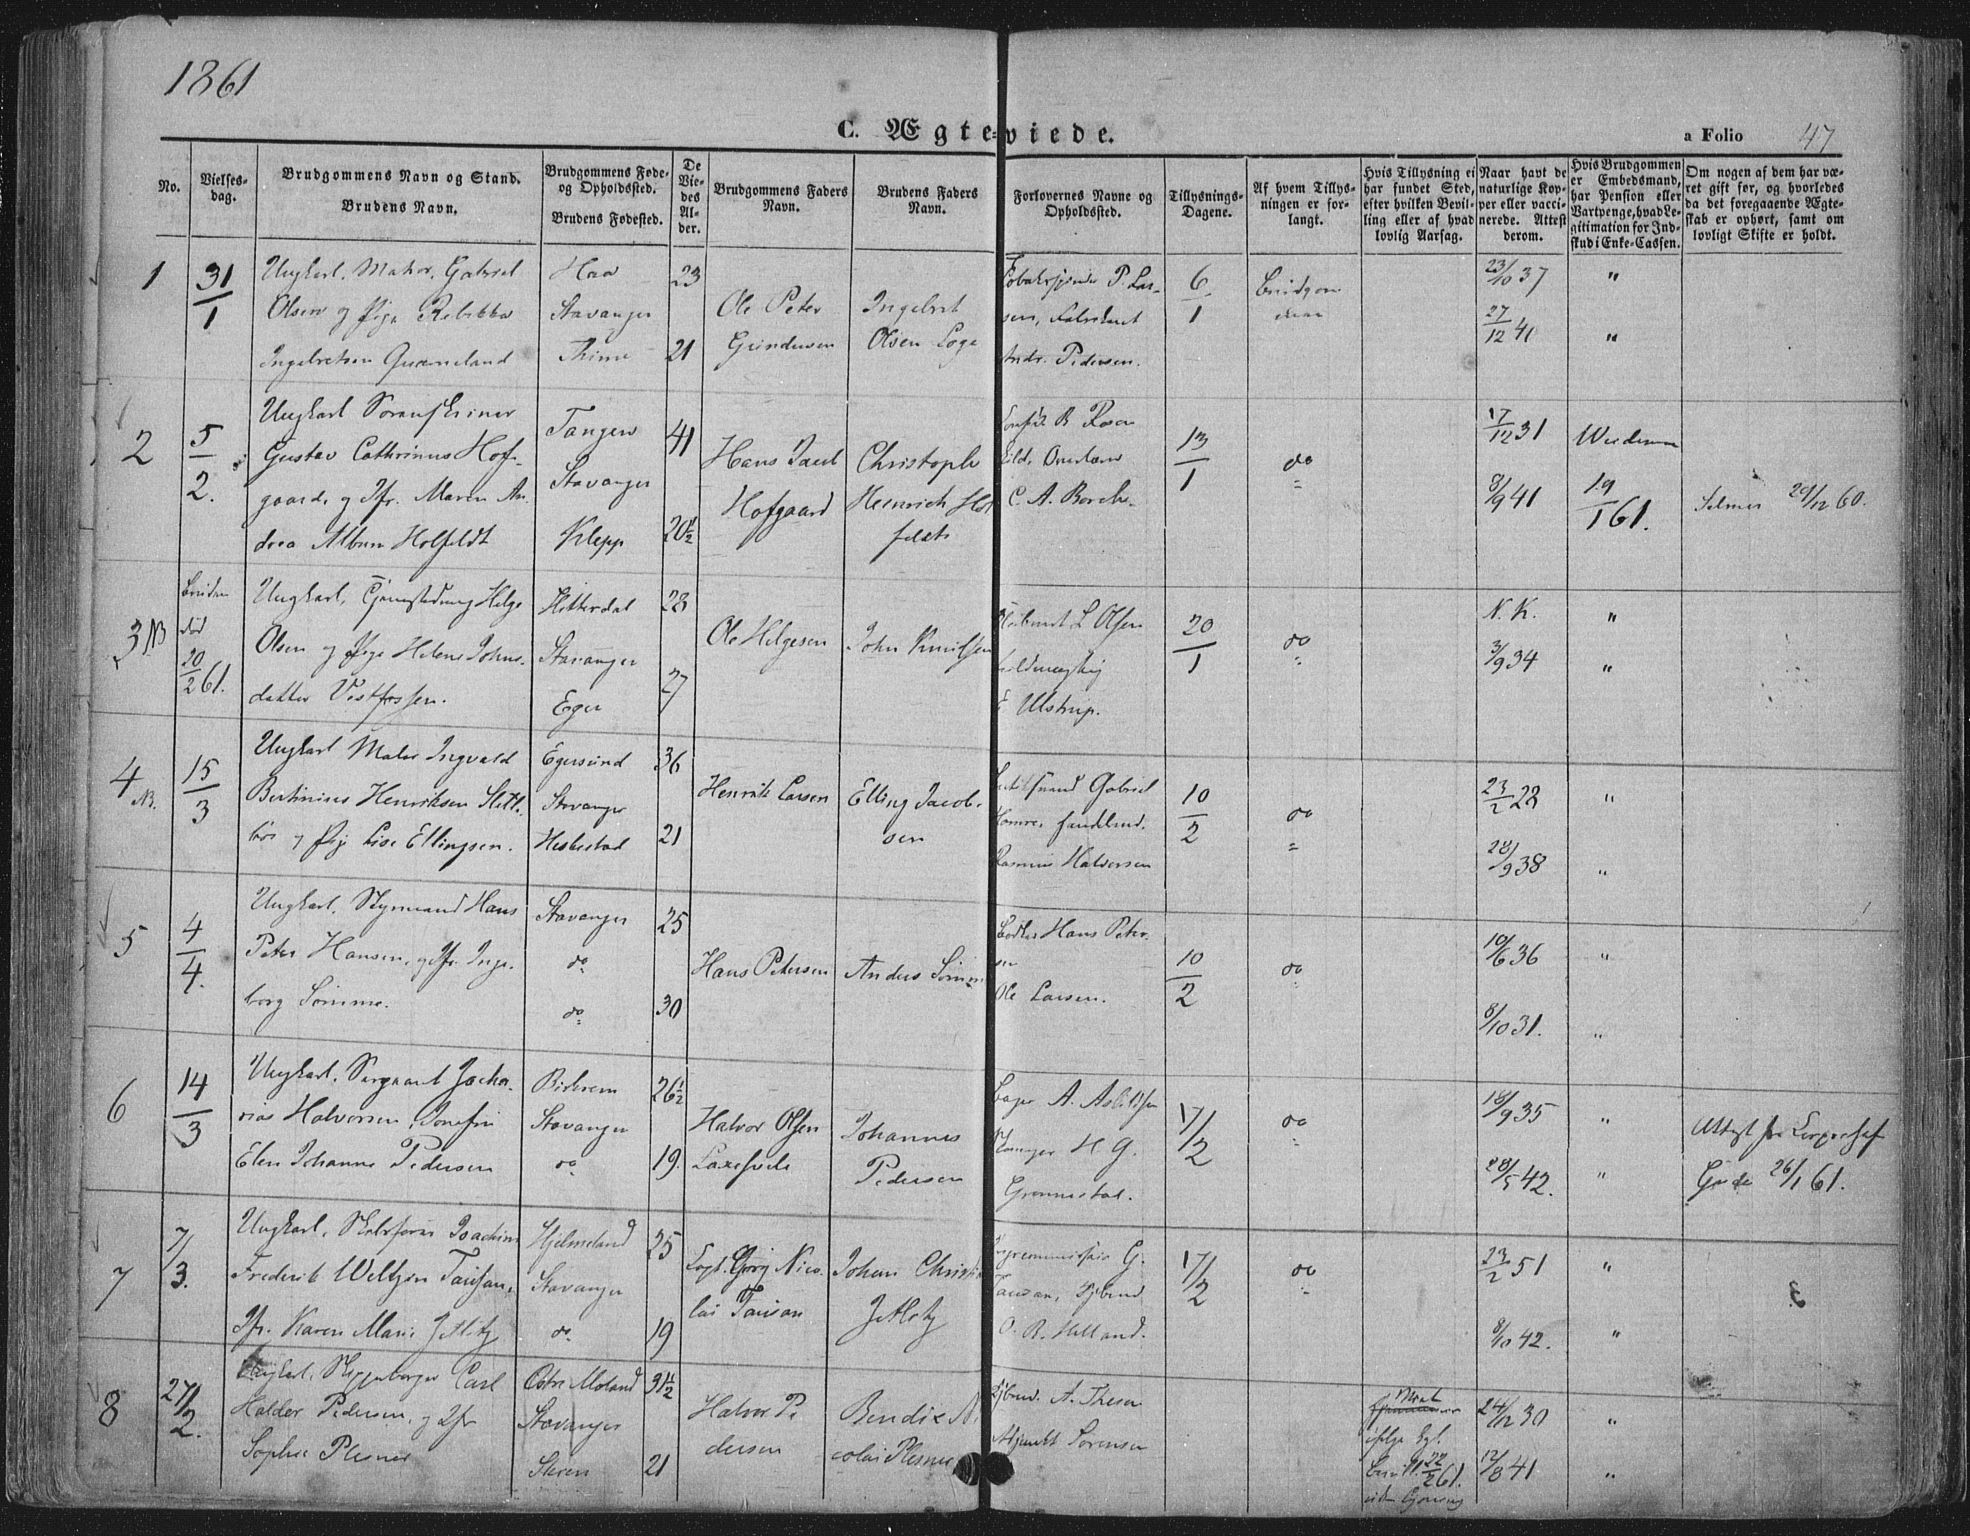 1861
C. Ægteviede.
a Folio 47
No.
Vielses-
dag.
Brudgommens Navn og Stand.
Brudens Navn.
Brudgommens Føde-
og Opholdssted.
Brudens Fødested.
De
Vie-
des
Al-
der.
Brudgommens Faders
Navn.
Brudens Faders
Navn.
Forlovernes Navne og
Opholdssted.
Tillysnings-
Dagene.
Af hvem Tillys-
ningen er for-
langt.
Hvis Tillysning ei
har fundet Sted,
efter hvilken Bevil-
ling eller af hvad
lovlig Aarsag.
Naar havt de
naturlige Kop-
per eller vacci-
nerede. Attest
derom.
Hvis Brudgommen
er Embedsmand,
har Pension eller
Vartpenge, hvad Le-
gitimation for Ind-
skud i Enke-Cassen.
Om nogen af dem har væ-
ret gift før, og hvorledes
da det foregaaende Ægte-
skab er ophørt, samt om
lovligt Skifte er holdt.
1
31/1
Ungkarl, Gabriel
Olsen og Pige Rebekka
Ingebretsen Qverneland
Haa
Stavanger
Thime
23
21
Ole Peter
Gundersen
Ingebret
Olsen Loge
P. Lar-
sen, Fabrikant
Andr. Pedersen.
6/1
Brudgom-
men
23/10 37
27/12 41
"
"
2
5/2.
Ungkarl
Gustav Cathrinus Hof-
gaard, og Jfr. Maren An-
drea Albun Holfeldt
Tangen
Stavanger
Klepp
41
20½
Hans Jacob
Hofgaard
Christoph
Heinrich Hol
feldt
B. Rosen
kilde, Overlærer
C. A. Borch.
13/1
do
17/12 31
8/9 41
19/1 61.
Selmer 29/12 60.
3 NB
Bruden
død
20/2 61.
Ungkarl, Helge
Olsen og Pige Helene Johns-
datter Vestfossen.
Hitterdal
Stavanger
Eger
28
27
Ole Helgesen
John Knudsen
L. Olsen
E. Ulstrup.
20/1
do
N. K.
3/9 34
"
"
4
NB.
15/3
Ungkarl Maler Ingvald
Bertinius Henriksen Slett-
bø og Pige Lise Ellingsen.
Egersund
Stavanger
Heskestad
36
21
Henrik Larsen
Elling Jacob-
sen
Gabriel
Rasmus Halvorsen
10/2
do
23/2 22
28/9 38
"
"
5
4/4.
Ungkarl, Styrmand Hans
Peter Hansen, og Jfr. Inge-
borg Sømme.
Stavanger
do
do
25
30
Hans Petersen
Anders Sømme
Bødker Hans Peter-
sen
Ole Larsen.
10/2
do
10/6 36
8/10 31.
"
"
6
14/3
Ungkarl, Sergeant Zacha-
rias Halvorsen, Jomfru
Elen Johanne Pedersen
Birkrem
Stavanger
do
26½
19.
Halvor Olsen
Laxesvele
Johannes
Pedersen
Bager A. Asbildsen
H. G.
Grønnestad.
17/2
do
18/9 35
28/5 42.
"
"
Attest fra
Gjede 26/1 61.
7
7/3.
Ungkarl, Joachim
Frederik Weltzin Tausan,
Jfr. Karen Marie Zetlitz
Hjelmeland
Stavanger
do.
25
19
Fogd. Georg Nico-
lai Tausan
Johan Christian
Zetlitz
G.
Tausan, Kjøbmd.
O. R. Helland.
17/2
do
23/2 51
8/10 42.
"
"
8
27/2.
Ungkarl, Carl
Haldor Pedersen, og Jfr
Sophie Plesner
Østre Moland
Stavanger
Skien
31½
21
Halvor Pe
dersen
Bendix Ni
colai Plesner
Kjøbmd. A. Thesen
Adjunkt Sørensen
ifølge Kgl.
Bevill. 22/2 61.
24/12 30
12/8 41
"
"